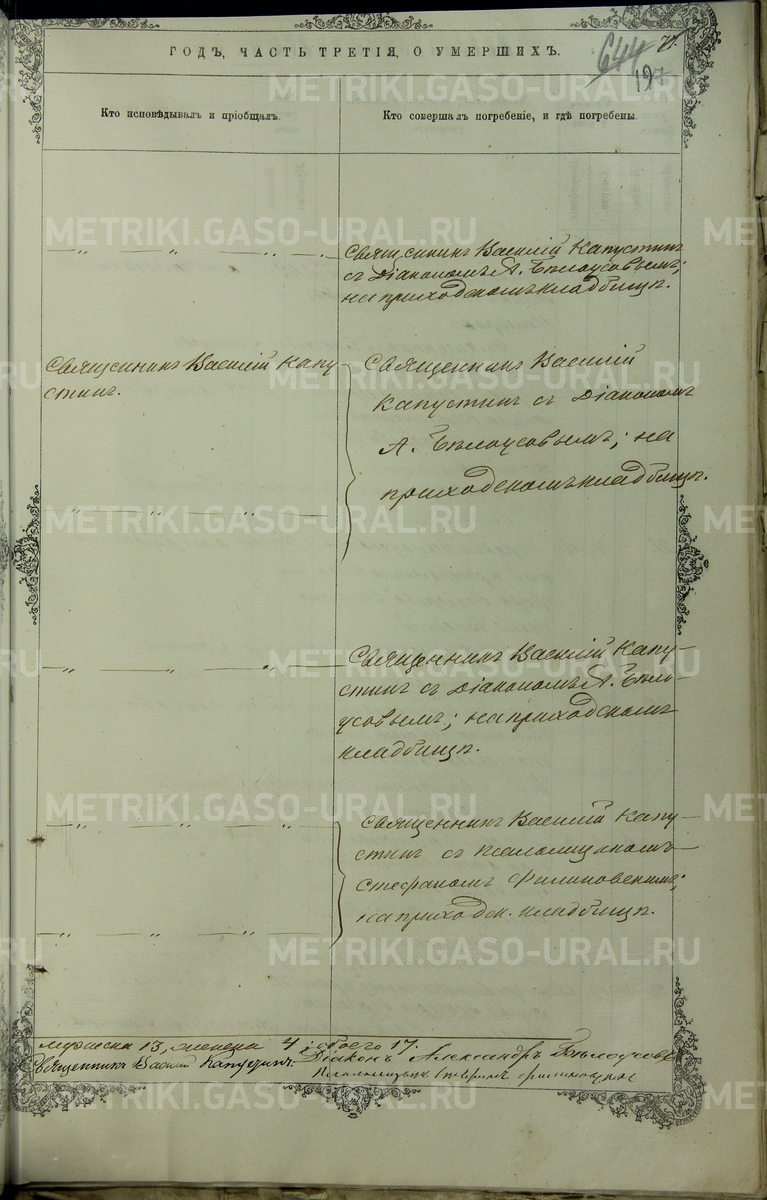 ГОДЪ, ЧАСТЬ ТРЕТІЯ, О УМЕРШИХЪ.
644
71.
197
Кто исповѣдывалъ и пріобщалъ.
Кто совершалъ погребеніе, и гдѣ погребены.
— „ — „ — „ — „ —
Священникъ Василій Капустинъ
съ Діакономъ А. Бѣлоусовымъ;
на приходскомъ кладбищѣ.
Священникъ Василій Капу
стинъ.
Священникъ Василій
Капустинъ съ Діакономъ
А. Бѣлоусовымъ; на
приходскомъ кладбищѣ.
— „ — „ — „ —
— „ — „ —
Священникъ Василій Капу-
стинъ съ Діакономъ А. Бѣло-
усовымъ; на приходскомъ
кладбищѣ.
— „ — „ — „ — „ —
Священникъ Василій Капу-
стинъ съ Псаломщикомъ
Стефаномъ Филиновскимъ;
на приходск. кладбищѣ.
— „ — „ — „ — „ —
Мужеска 13, женска 4, обоего 17.
Священникъ Василій Капустинъ. Діаконъ Александръ Бѣлоусовъ
Псаломщикъ Стефанъ
METRIKI.GASO-URAL.RU